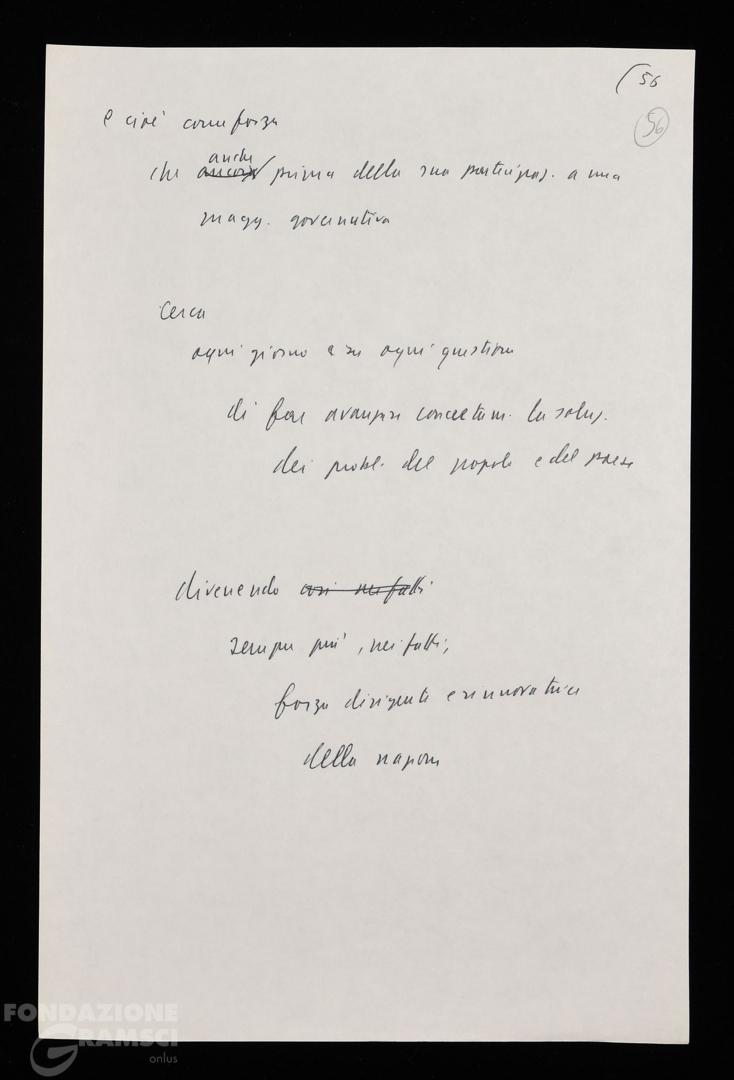 56
56
e cioè come forza
anche
che ancora prima della sua partecipaz. a una
magg. governativa
Cerca
ogni giorno e su ogni questione
di fare avanzare concretam. la soluz.
dei probl. del popolo e del paese
divenendo così nei fatti
sempre più, nei fatti,
forza dirigente e rinnovatrice
della nazione
FONDAZIONE
GRAMSCI
onlus